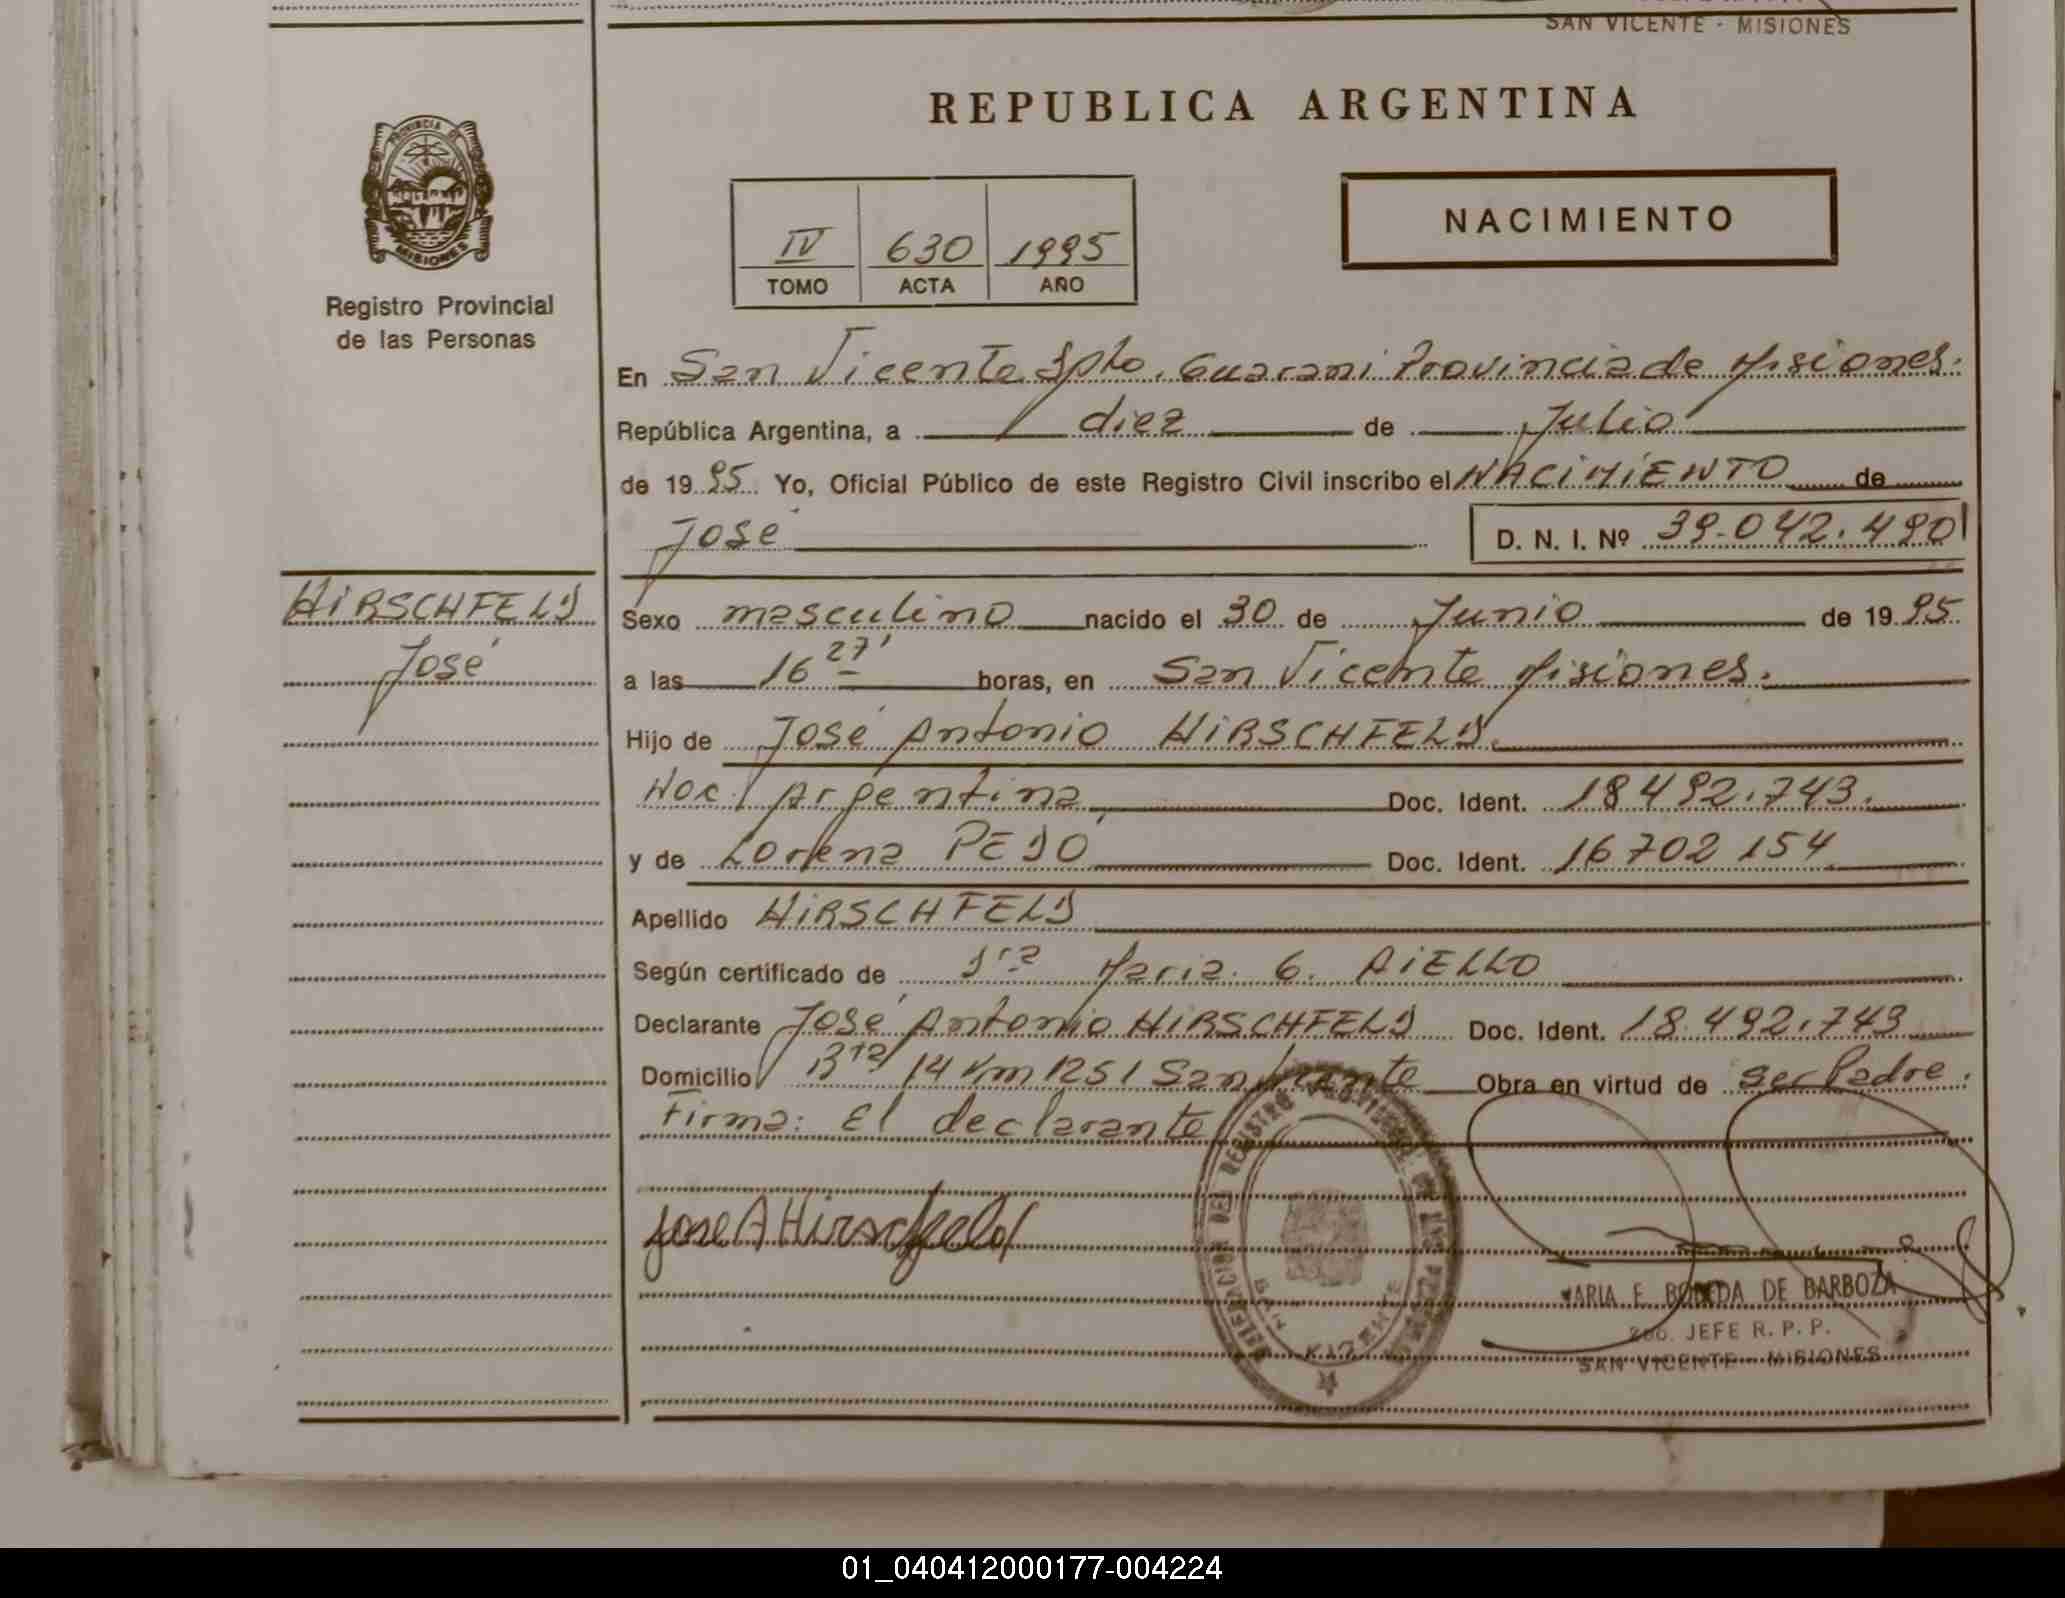 SAN VICENTE - MISIONES
REPUBLICA ARGENTINA
PROVINCIA DE
MISIONES
Registro Provincial
de las Personas
NACIMIENTO
IV 630 1995
TOMO ACTA AÑO
En San Vicente Dpto. Guarani Provincia de Misiones.
República Argentina, a diez de Julio
de 1995 Yo, Oficial Público de este Registro Civil inscribo el NACIMIENTO de
José D. N. I. Nº 39.042.490
HIRSCHFELD
José
Sexo masculino nacido el 30 de Junio de 1995
a las 16 27' horas, en San Vicente Misiones.
Hijo de José Antonio HIRSCHFELD.
Nac. Argentina Doc. Ident. 18492.743.
y de Lorena PEDO Doc. Ident. 16702154
Apellido HIRSCHFELD
Según certificado de Dra Maria G. AIELLO
Declarante José Antonio HIRSCHFELD Doc. Ident. 18.492.743
Domicilio 14 Km 1251 San Vicente Obra en virtud de ser Padre.
Firma: El declarante
Jose A Hirschfeld
DELEGACION DEL REGISTRO PROVINCIAL DE LAS PERSONAS
SAN VICENTE
MARIA E. DE BARBOZA
2do. JEFE R. P. P.
SAN VICENTE - MISIONES
01_040412000177-004224